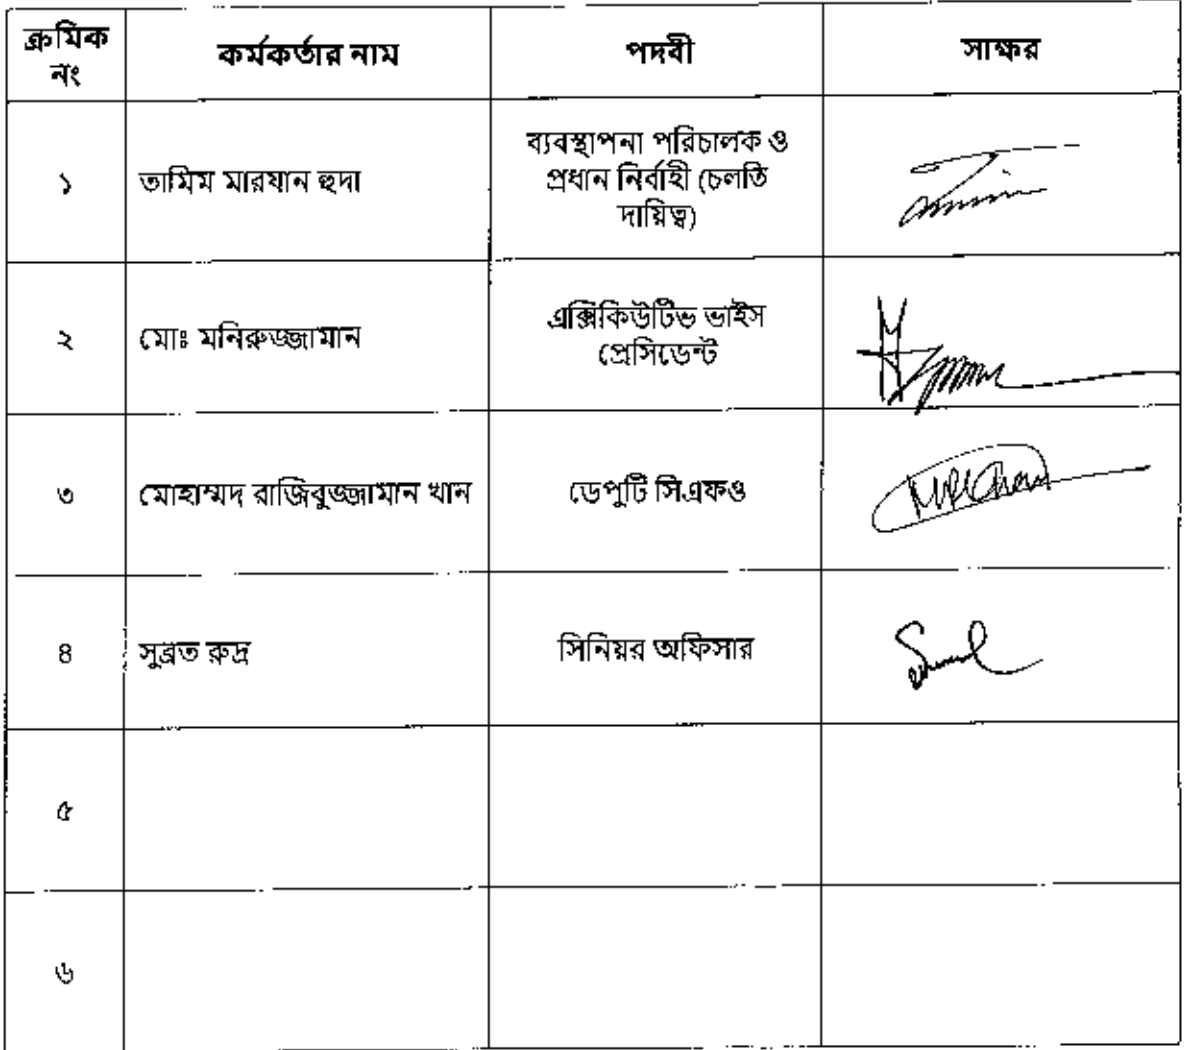 ক্রমিক নং	কর্মকর্তার নাম	পদবী	সাক্ষর
১	তামিম মারযান হুদা	ব্যবস্থাপনা পরিচালক ও
প্রধান নির্বাহী (চলতি
দায়িত্ব)
২	মোঃ মনিরুজ্জামান	এক্সিকিউটিভ ভাইস
প্রেসিডেন্ট
৩	মোহাম্মদ রাজিবুজ্জামান খান	ডেপুটি সিএফও
৪	সুব্রত রুদ্র	সিনিয়র অফিসার
৫
৬